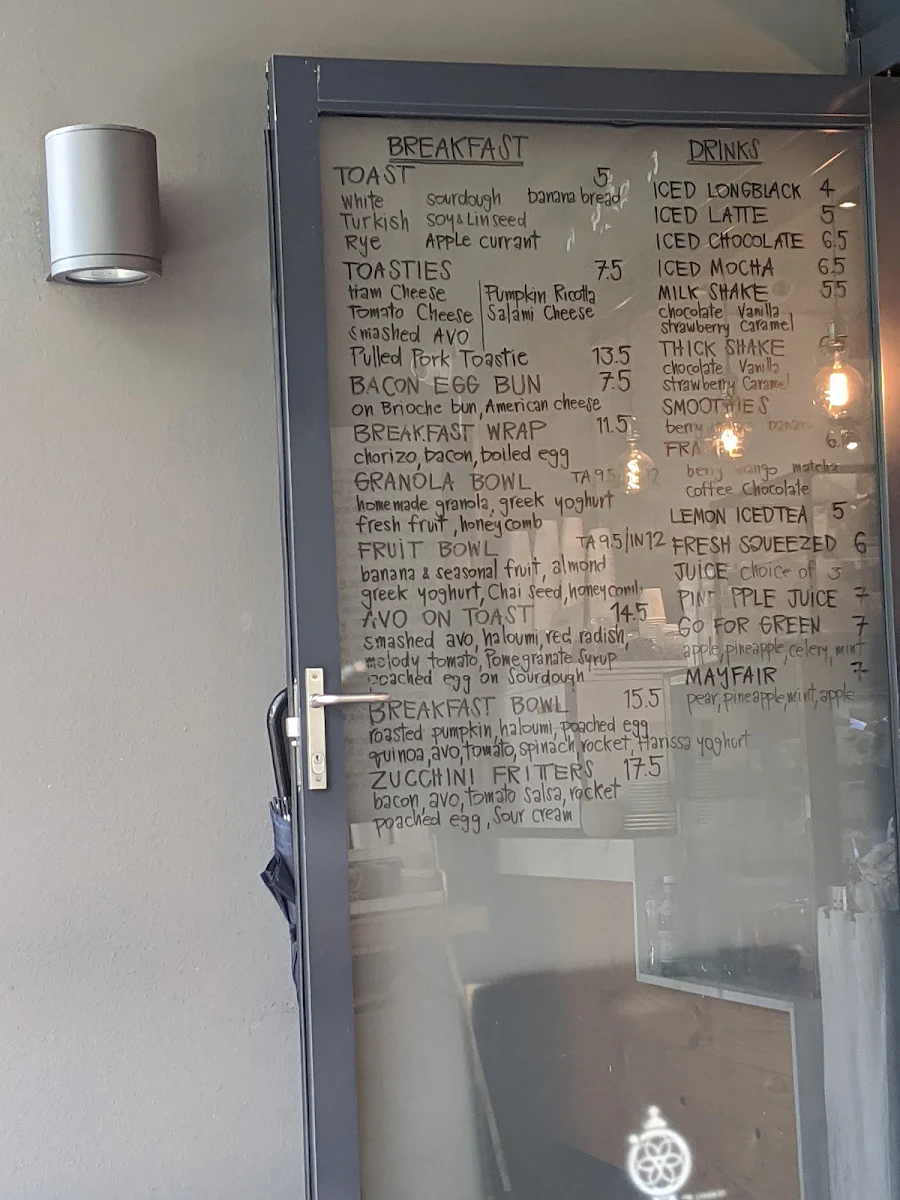 BREAKFAST
TOAST 5
White sourdough banana bread
Turkish Soy & Linseed
Rye Apple currant
TOASTIES 7.5
Ham Cheese Pumpkin Ricotta
Tomato Cheese Salami Cheese
Smashed AVO
Pulled Pork Toastie 13.5
BACON EGG BUN 7.5
on Brioche bun, American cheese
BREAKFAST WRAP 11.5
chorizo, bacon, boiled egg
GRANOLA BOWL TA 9.5
homemade granola, greek yoghurt
fresh fruit, honeycomb
FRUIT BOWL TA 9.5/IN 12
banana & seasonal fruit, almond
greek yoghurt, Chai Seed, honeycomb
AVO ON TOAST 14.5
smashed avo, haloumi, red radish,
melody tomato, Pomegranate Syrup
poached egg on Sourdough
BREAKFAST BOWL 15.5
roasted pumpkin, haloumi, poached egg
quinoa, avo, tomato, spinach, rocket, Harissa yoghurt
ZUCCHINI FRITTERS 17.5
bacon, avo, tomato salsa, rocket
poached egg, Sour cream
DRINKS
ICED LONGBLACK 4
ICED LATTE 5
ICED CHOCOLATE 6.5
ICED MOCHA 6.5
MILK SHAKE 5.5
chocolate Vanilla
strawberry Caramel
THICK SHAKE
chocolate Vanilla
strawberry Caramel
SMOOTHIES
berry banana
berry mango matcha
coffee Chocolate
LEMON ICEDTEA 5
FRESH SQUEEZED 6
JUICE choice of 3
PINE PPLE JUICE 7
GO FOR GREEN 7
apple, pineapple, celery, mint
MAYFAIR 7
pear, pineapple, mint, apple